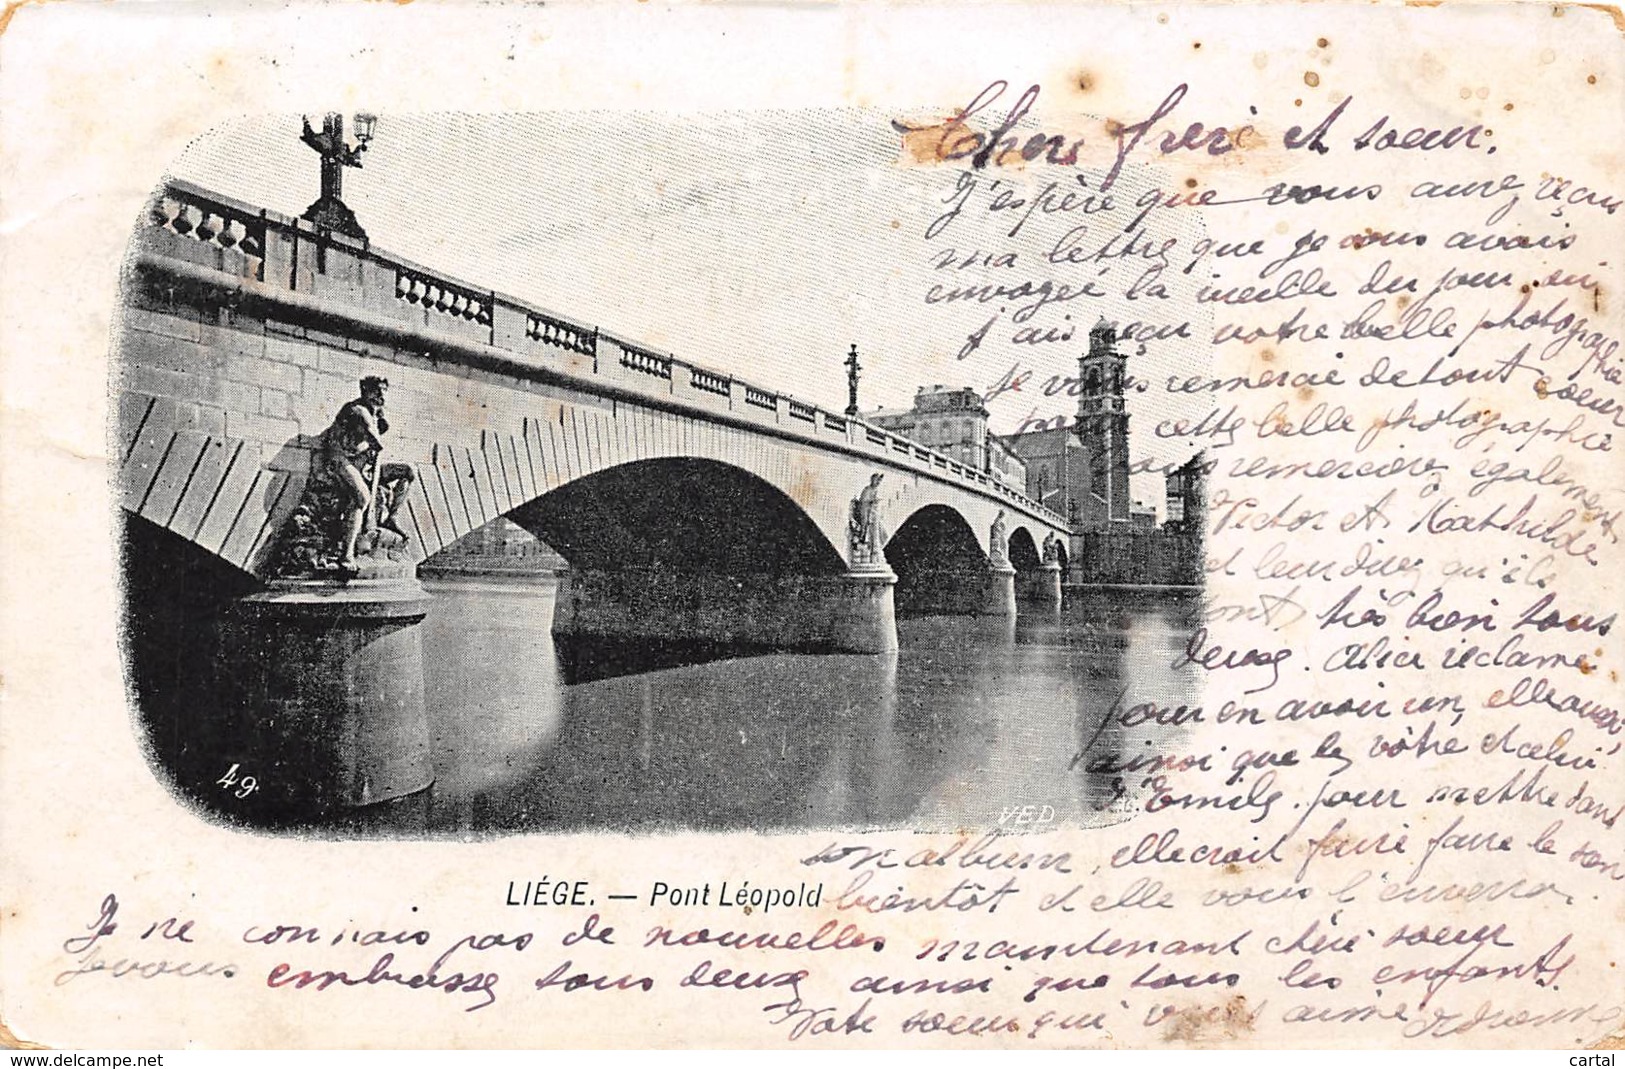 Chers frère et soeur.
J'espère que vous aurez reçus
ma lettre que je vous avais
envoyéé la vieille du jour où
j'ais reçu votre belle photographie
je vous remercie de tout coeur
pour cette belle photographie
vous remercierez également
Victor et Mathilde
et leur direz qu'ils
sont très bien tous
deux. Alice réclame
pour en avoir un, elle a
ainsi que le vôtre et celui
d'Emile. pour mettre dans
son album, elle croit faire faire le sien
bientôt et elle vous l'enverra.
LIÉGE. — Pont Léopold
Je ne connais pas de nouvelles maintenant chère soeur
je vous embrasse tous deux ainsi que tous les enfants.
Vote soeur qui vous aime
49
VED
www.delcampe.net
cartal